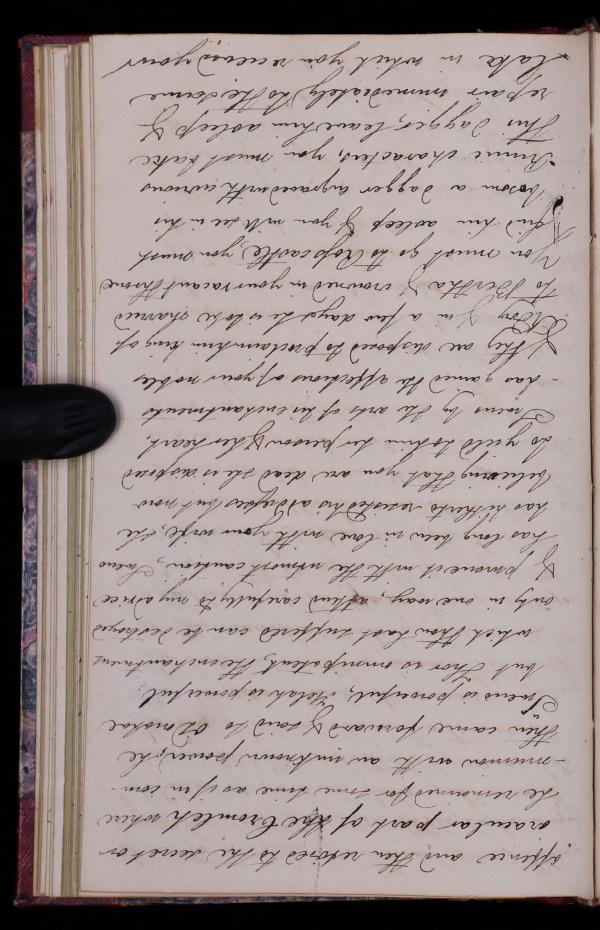 offence and then retired to the secret or
oracular part of the Cromlech where
he remained for some time as if in com-
-munion with an unknown power, he
then came forward & said to
Sweno is powerful, Helah is powerful,
but Thor is omnipotent, the enchantment
which thou hast suffered can be destroyed
only in one way, attend carefully to my advice
& pursue it with the utmost caution, Sweno
has long been in love with your wife, she
has hitherto resisted his addresses but now
believing that you are dead she is disposed
to yield to him her person & her heart,
Sweno by the arts of his enchantments
-has gained the affections of your nobles
& they are disposed to proclaim him king of
in a few days he is to be married
to Bertha & crowned in your vacant throne
You must go to you must
find him asleep & you will see in his
bosom a dagger engraved with curious
Runic characters, you must take
this dagger, leave him asleep &
repair immediately to the same
lake in which you received your